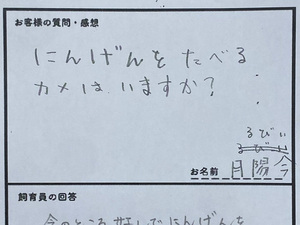 お客様の質問・感想
にんげんをたべる
カメはいますか?
るびい
るびい
お名前 月陽令
飼育員の回答
今のところ好んでにんげんを